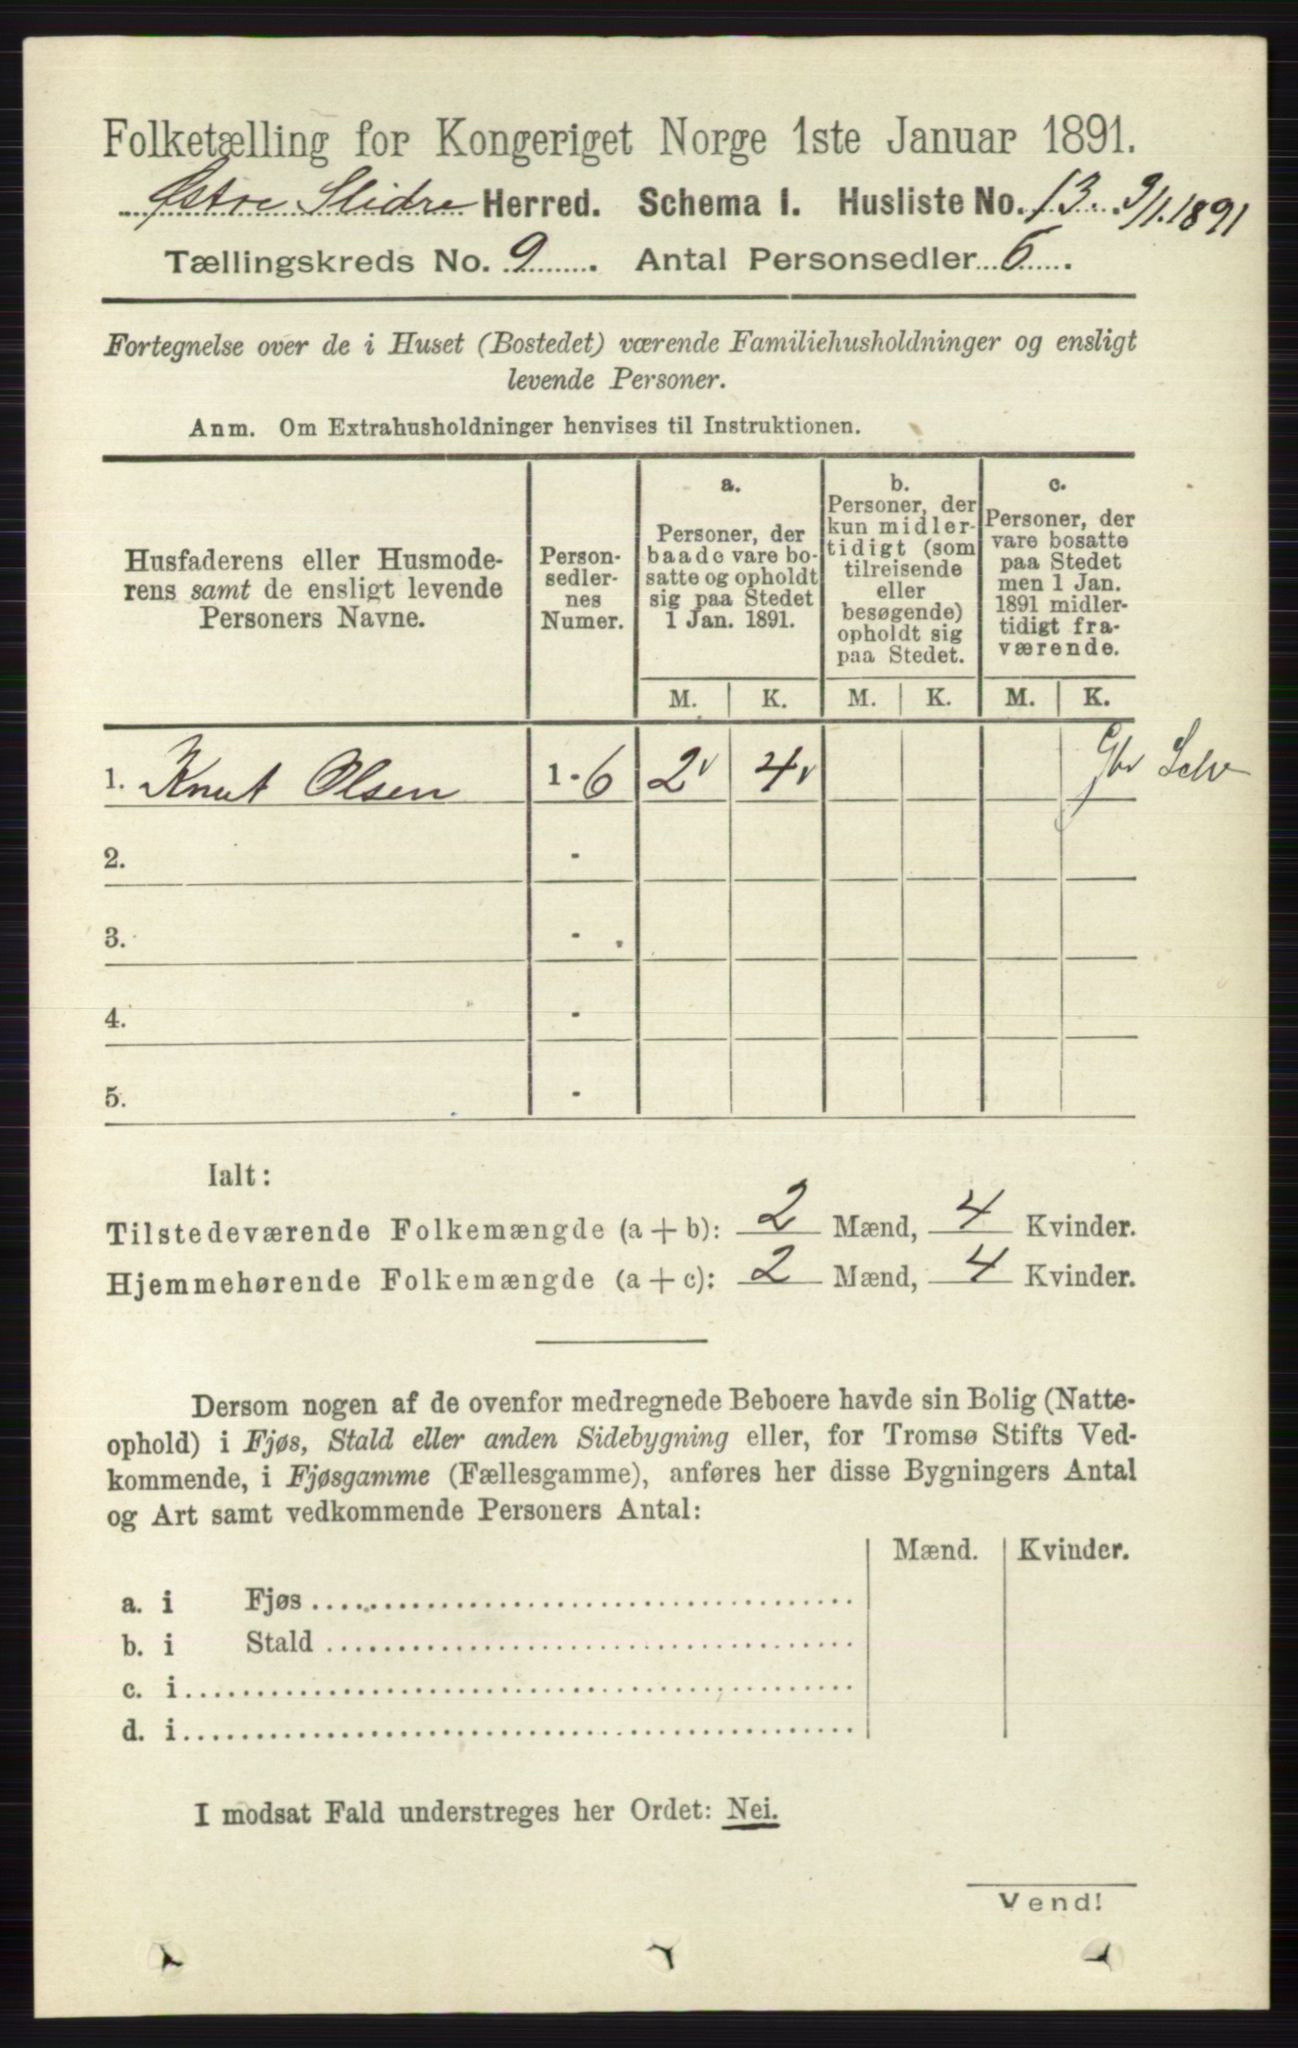 Folketælling for Kongeriget Norge 1ste Januar 1891.
Østre Slidre Herred. Schema I. Husliste No. 13. 9/1.1891
Tællingskreds No. 9. Antal Personsedler 6.
Fortegnelse over de i Huset (Bostedet) værende Familiehusholdninger og ensligt
levende Personer.
Anm. Om Extrahusholdninger henvises til Instruktionen.
Husfaderens eller Husmode-
rens samt de ensligt levende
Personers Navne.
Person-
sedler-
nes
Numer.
a.
Personer, der
baade vare bo-
satte og opholdt
sig paa Stedet
1 Jan. 1891.
b.
Personer, der
kun midler-
tidigt (som
tilreisende
eller
besøgende)
opholdt sig
paa Stedet.
c.
Personer, der
vare bosatte
paa Stedet
men 1 Jan.
1891 midler-
tidigt fra-
værende.
M. K. M. K. M. K.
1. Knut Olsen 1-6 2 4 Gbr Selv
2. -
3. - .
4. -
5. -
Ialt:
Tilstedeværende Folkemængde (a + b): 2 Mænd, 4 Kvinder.
Hjemmehørende Folkemængde (a + c): 2 Mænd, 4 Kvinder.
Dersom nogen af de ovenfor medregnede Beboere havde sin Bolig (Natte-
ophold) i Fjøs, Stald eller anden Sidebygning eller, for Tromsø Stifts Ved-
kommende, i Fjøsgamme (Fællesgamme), anføres her disse Bygningers Antal
og Art samt vedkommende Personers Antal:
Mænd. Kvinder.
a. i Fjøs
b. i Stald
c. i
d. i
I modsat Fald understreges her Ordet: Nei.
Vend!